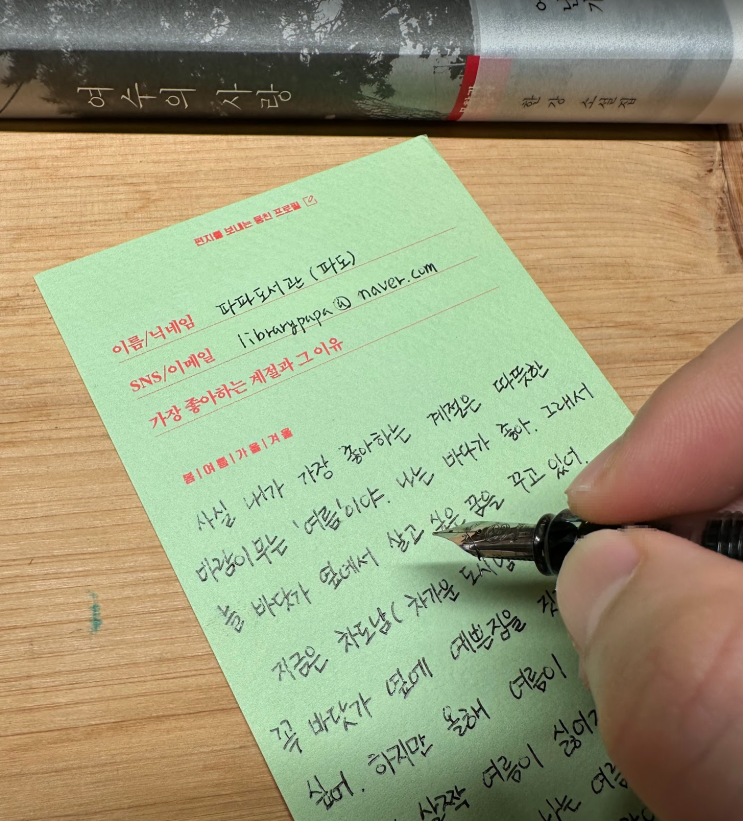 여수의 사랑
한강 소설집
편지를 보내는 동친 프로필
이름/닉네임 파파도서관 (파도)
SNS/이메일 librarypapa@naver.com
가장 좋아하는 계절과 그 이유
봄 | 여름 | 가을 | 겨울
사실 내가 가장 좋아하는 계절은 따뜻한
바람이 부는 '여름'이야. 나는 바다가 좋아. 그래서
늘 바닷가 옆에서 살고 싶은 꿈을 꾸고 있어.
지금은 차도남(차가운 도시
꼭 바닷가 옆에 예쁜집을
싶어. 하지만 올해 여름이
살짝 여름이 싫어
나는